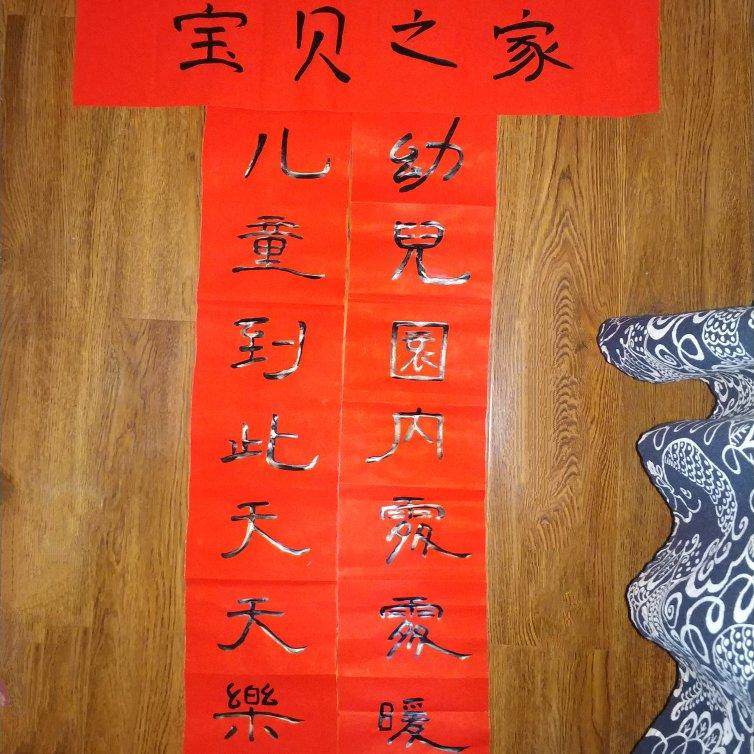 宝贝之家
幼兒園内處處暖
儿童到此天天樂